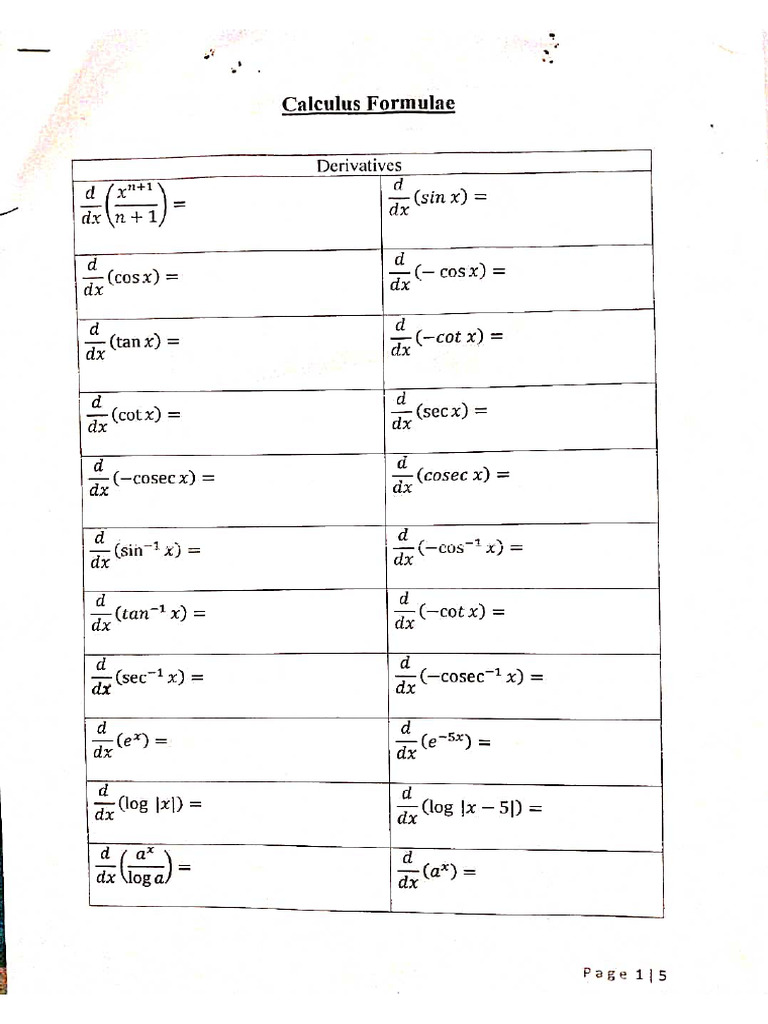 Calculus Formulae
Derivatives
d/dx (xⁿ⁺¹/n + 1) =
d/dx (sin x) =
d/dx (cos x) =
d/dx (− cos x) =
d/dx (tan x) =
d/dx (−cot x) =
d/dx (cot x) =
d/dx (sec x) =
d/dx (−cosec x) =
d/dx (cosec x) =
d/dx (sin⁻¹ x) =
d/dx (−cos⁻¹ x) =
d/dx (tan⁻¹ x) =
d/dx (−cot x) =
d/dx (sec⁻¹ x) =
d/dx (−cosec⁻¹ x) =
d/dx (eˣ) =
d/dx (e⁻⁵ˣ) =
d/dx (log |x|) =
d/dx (log |x − 5|) =
d/dx (aˣ/log a) =
d/dx (aˣ) =
Page 1|5